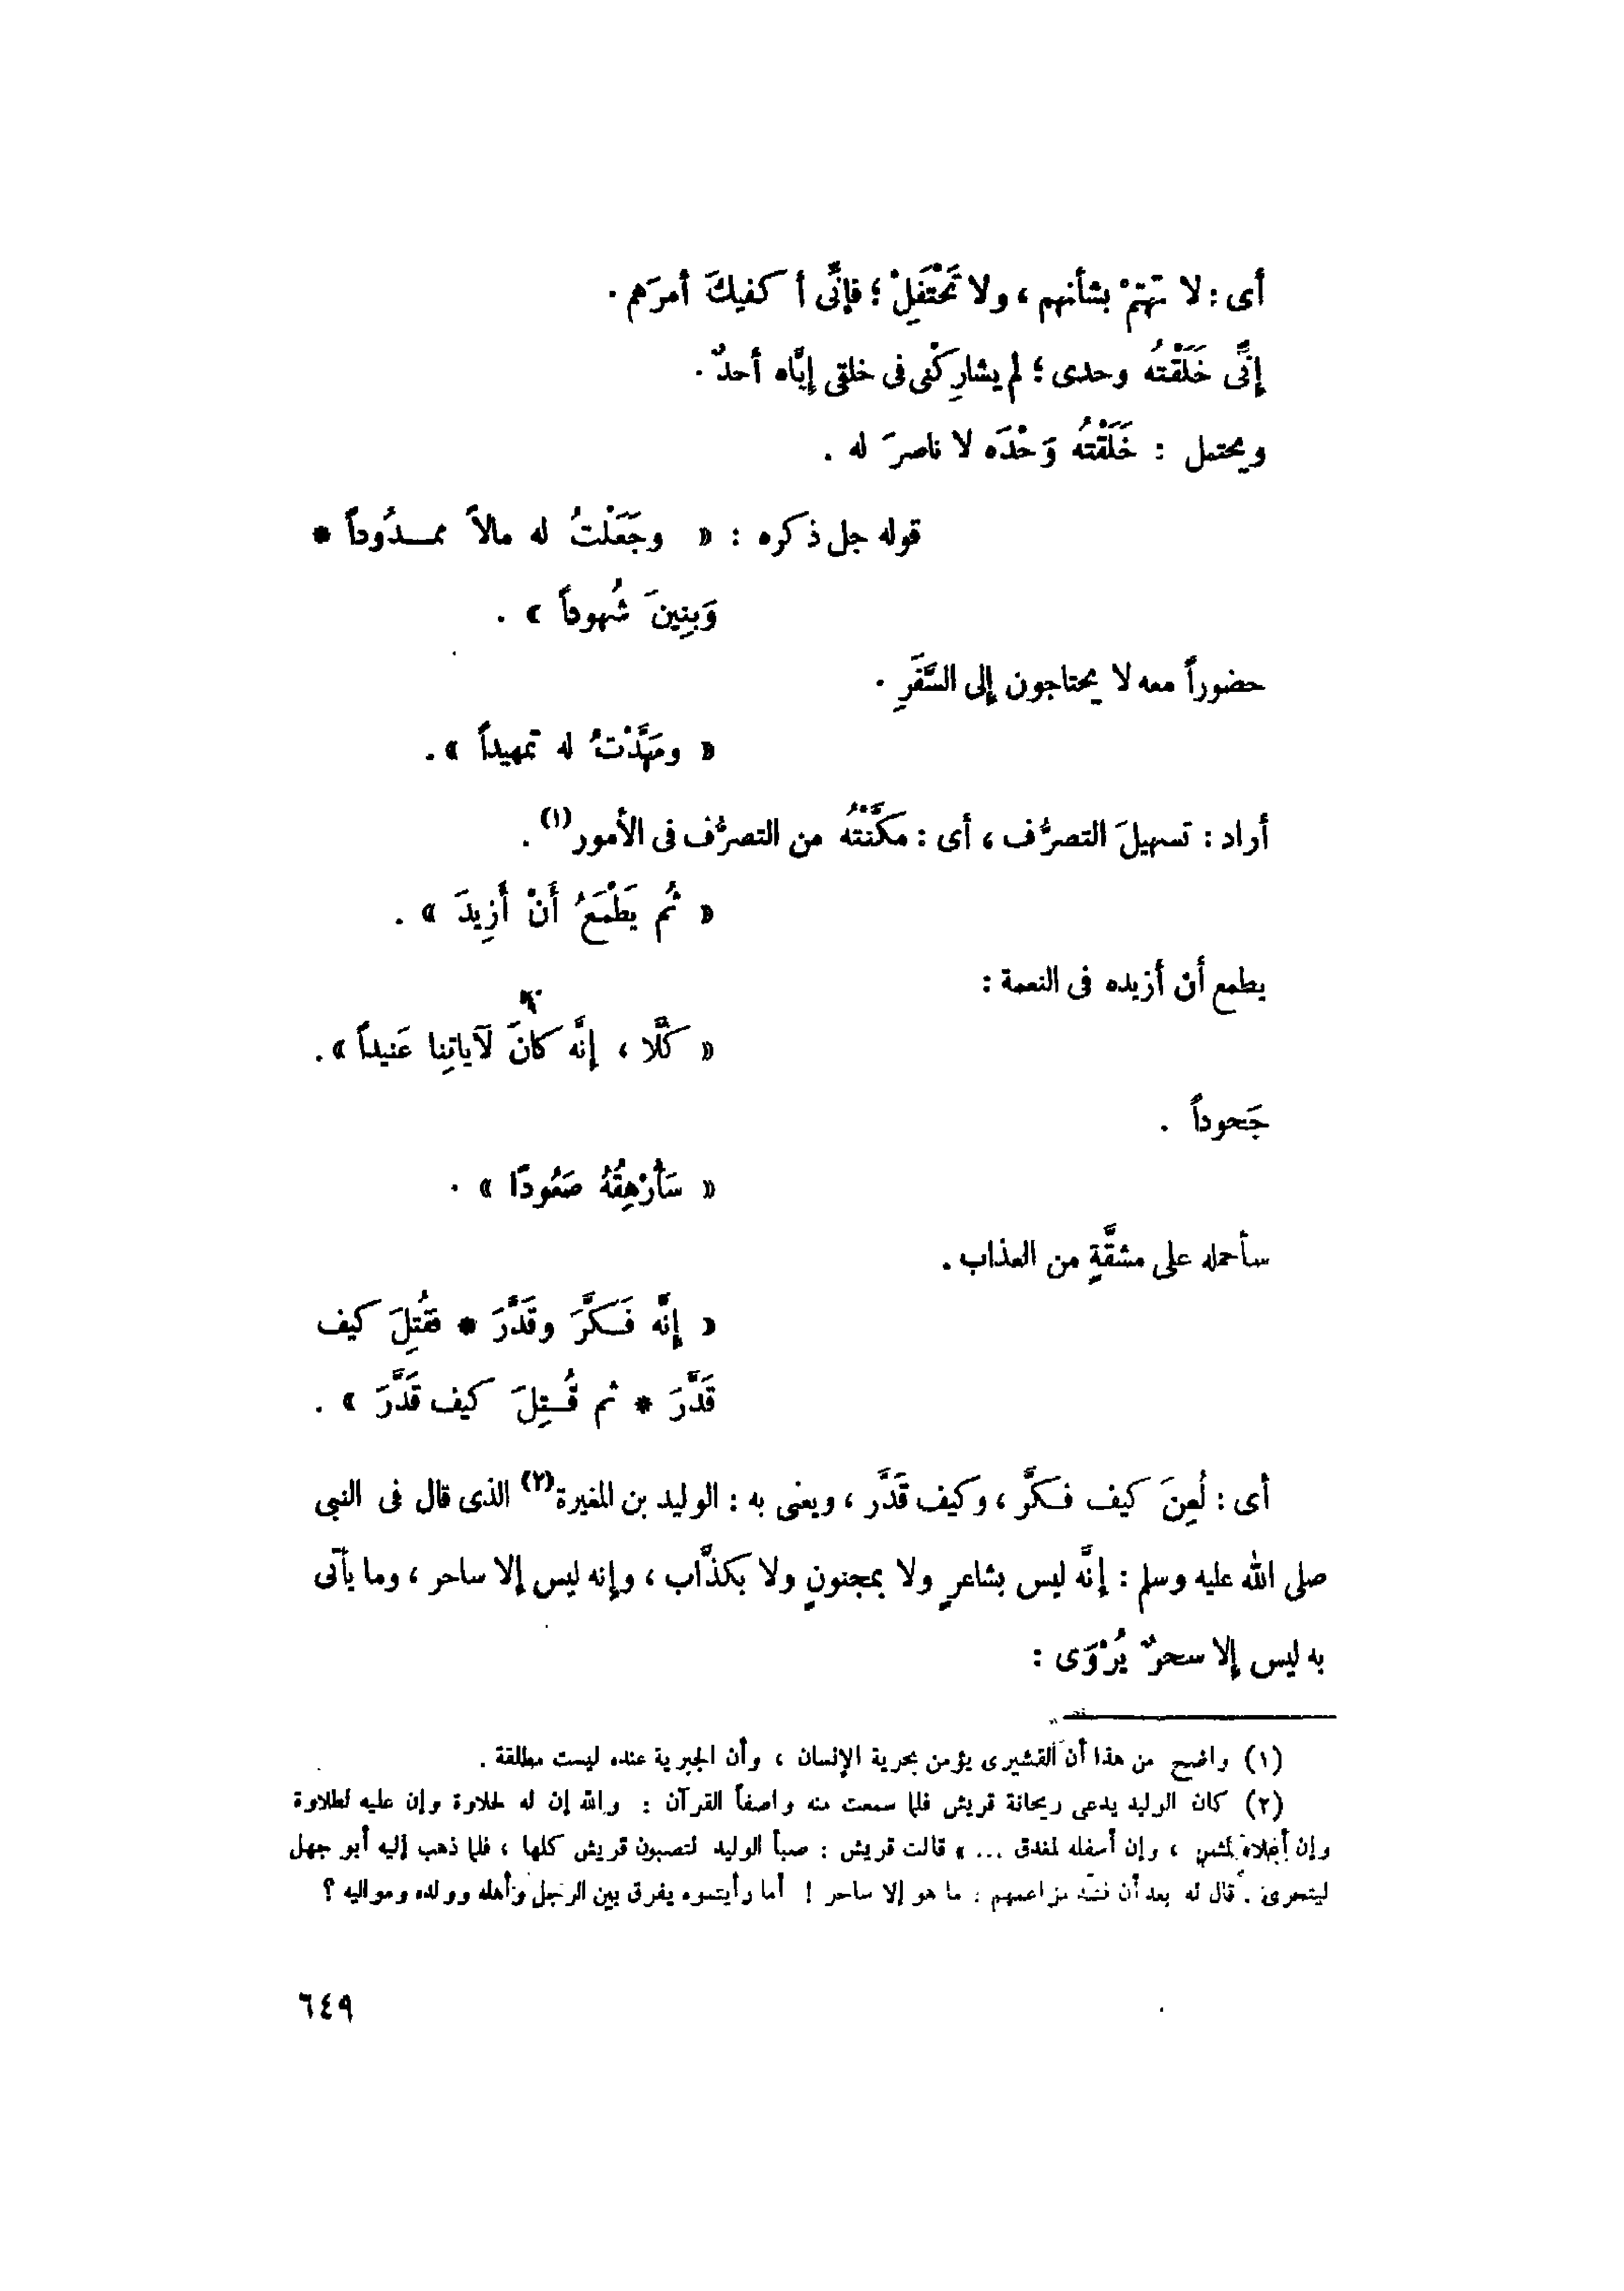 أى : لا تهتمْ بشأنهم ، ولا تَحْتَفِلْ ؛ فإنِّى أكفيكَ أمرَهم .
إنِّى خَلَقْتُه وحدى ؛ لم يشارِكْنى فى خلقى إيَّاه أحدٌ .
ويحتمل : خَلَقْتُه وَحْدَه لا ناصرَ له .
قوله جل ذكره : « وجَعَلْتُ له مالاً ممـدُوداً *
وَبنِينَ شُهوداً » .
حضوراً معه لا يحتاجون إلى السَّفَرِ .
« ومَهَّدْتُ له تمهيداً » .
أراد : تسهيلَ التصرُّف ، أى : مكَّنْتُه من التصرُّف فى الأمور (١) .
« ثُم يَطْمَعُ أَنْ أَزِيدَ » .
يطمع أن أزيده فى النعمة :
« كَلَّا ، إنَّه كانَ لآياتِنا عَنيداً » .
جَحوداً .
« سَأُرْهِقُهُ صَعُودًا » .
سأحمله على مشقَّةٍ من العذاب .
« إنَّه فَـكَّرَ وقَدَّرَ * فقُتِلَ كيف
قَدَّرَ * ثم قُـتِلَ كيف قَدَّرَ » .
أى : لُعِنَ كيف فـكَّر ، وكيف قَدَّر ، ويعنى به : الوليد بن المغيرة (٢) الذى قال فى النبى
صلى الله عليه وسلم : إنَّه ليس بشاعرٍ ولا بمجنونٍ ولا بكذَّاب ، وإنه ليس إلا ساحر ، وما يأتى
به ليس إلا سحرٌ يُرْوَى :
(١) واضح من هذا أن القشيرى يؤمن بحرية الإنسان ، وأن الجبرية عنده ليست مطلقة .
(٢) كان الوليد يدعى ريحانة قريش فلما سمعت منه واصفاً القرآن : والله إن له لحلاوة وإن عليه لطلاوة
وإن أعلاه لمثمر ، وإن أسفله لمغدق ... » قالت قريش : صبأ الوليد لتصبون قريش كلها ، فلما ذهب إليه أبو جهل
ليتحرى . قال له بعد أن مزاعمهم : ما هو إلا ساحر ! أما رأيتموه يفرق بين الرجل وأهله وولده ومواليه ؟
٦٤٩